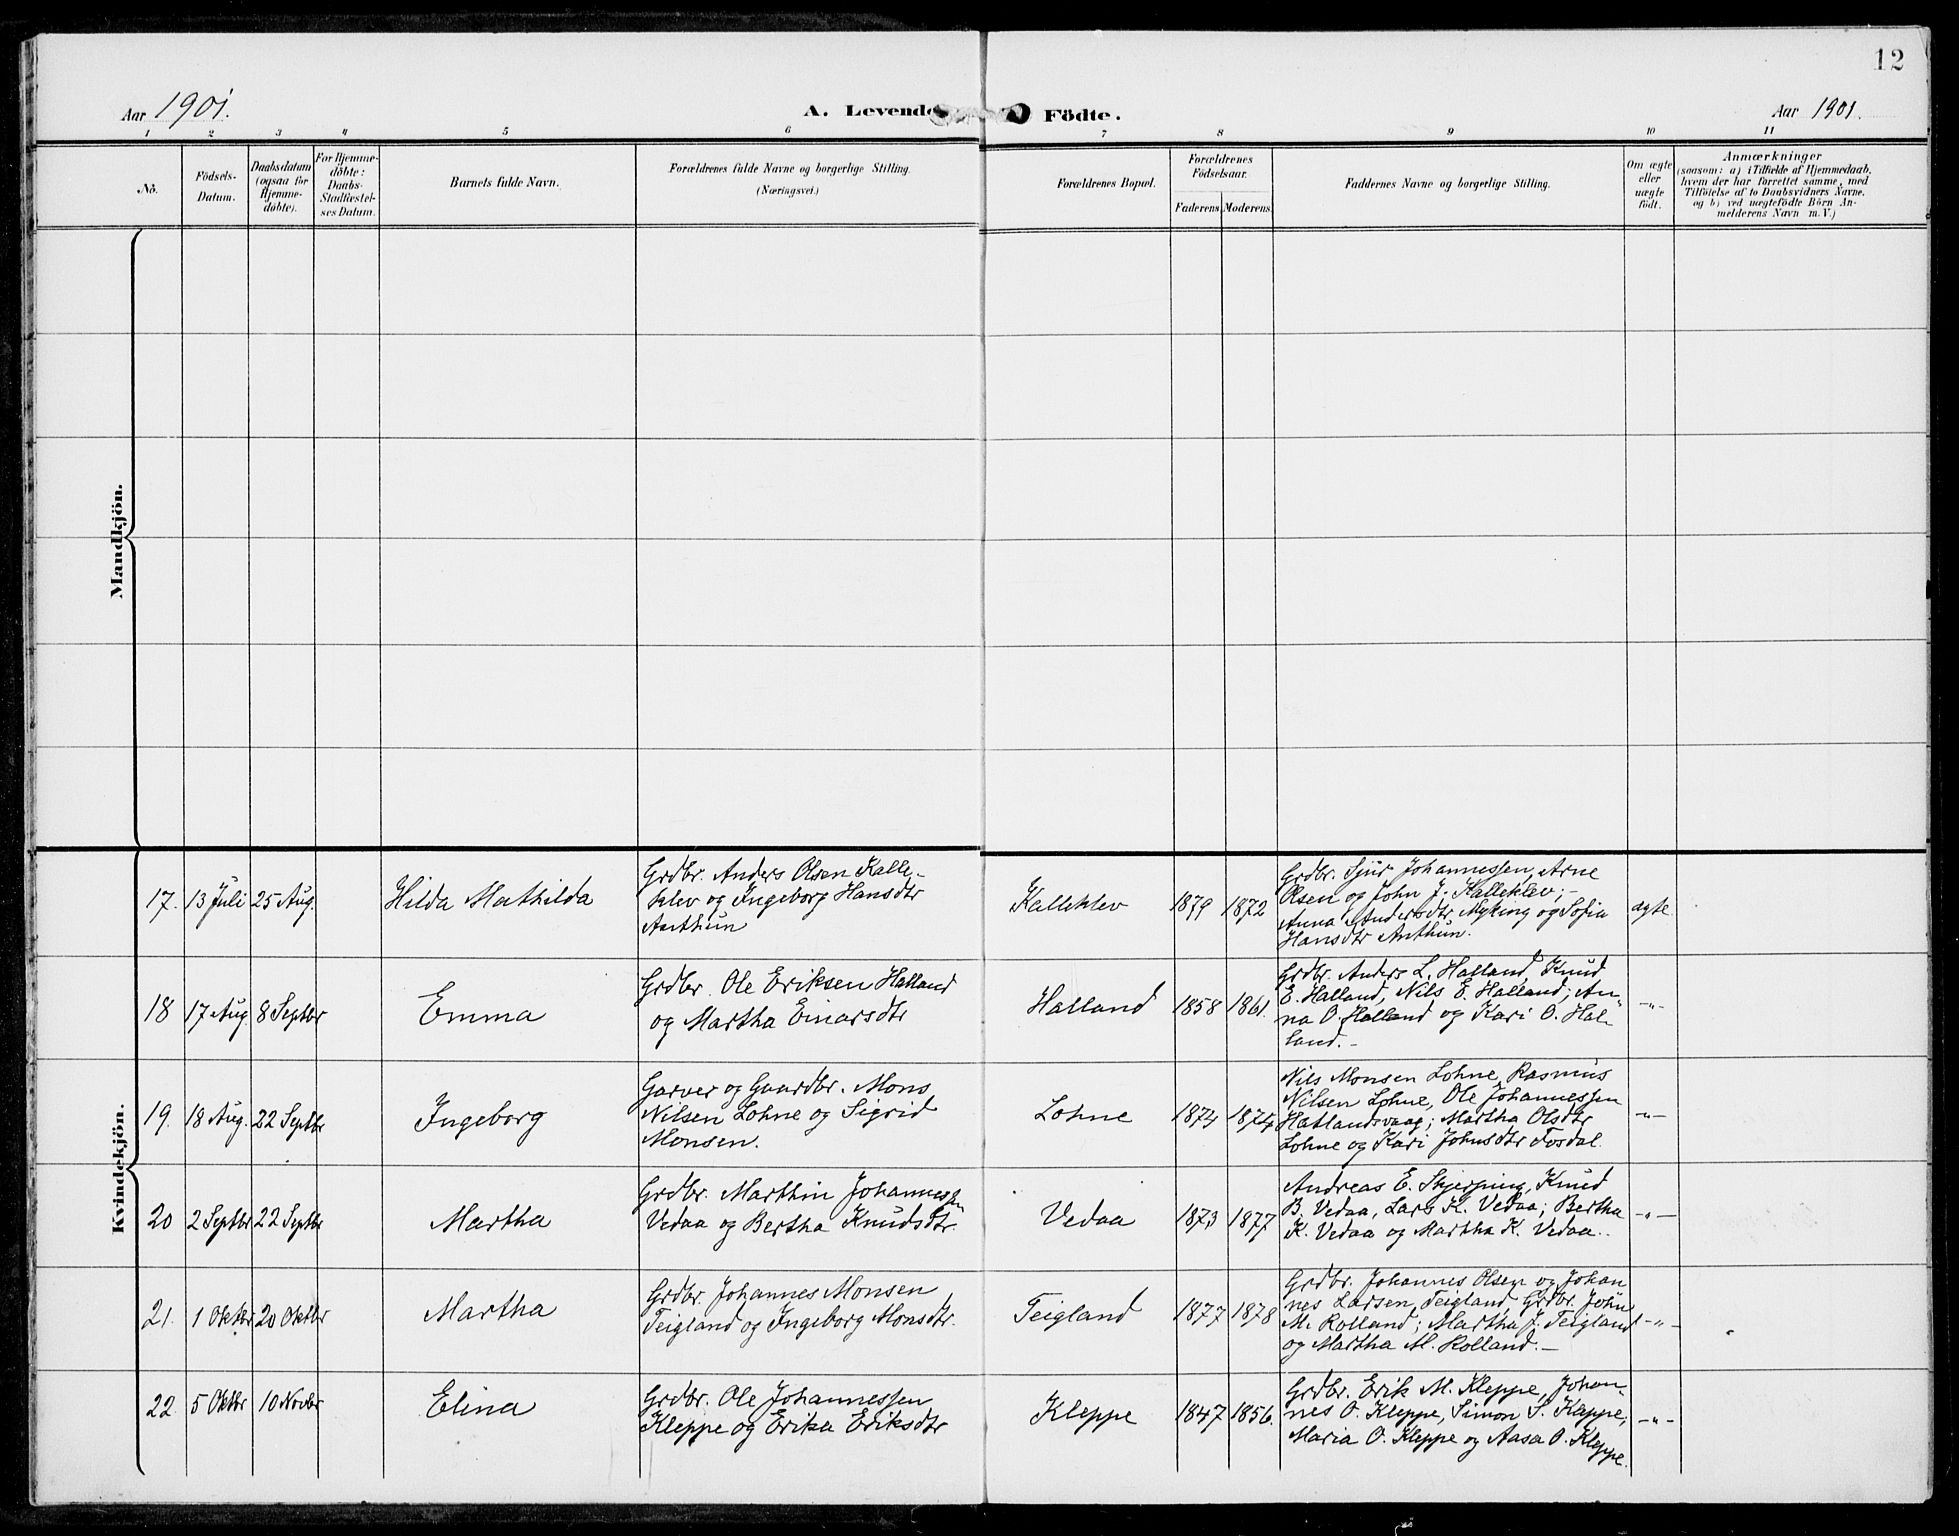 12
Aar 1901.
A. Levende Födte.
Aar 1901.
1 2 3 4 5 6 7 8 9 10 11
No.
Födsels-
Datum.
Daabsdatum
(ogsaa for
Hjemme-
döbte).
For Hjemme-
döbte:
Daabs-
Stadfæstel-
ses Datum.
Barnets fulde Navn.
Forældrenes fulde Navne og borgerlige Stilling.
(Næringsvei.)
Forældrenes Bopæl.
Forældrenes
Födselsaar.
Faderens Moderens
Faddernes Navne og borgerlige Stilling.
Om ægte
eller
uægte
födt.
Anmærkninger
(saasom: a) i Tilfælde af Hjemmedaab,
hvem der har forrettet samme, med
Tilföielse af to Daabsvidners Navne.
og b) ved uægtefödte Börn An-
melderens Navn m. V.)
Mandkjön.
Kvindekjön.
17. 13 Juli 25 Aug.
Hilda Mathilda
Grdbr. Anders Olsen Kalle-
klev og Ingeborg Hansdtr
Anthun
Kalleklev
1879 1872
Grdbr. Sjur Johannessen, Arne
Olsen og John J. Kalleklev;-
Anna Andersdtr Myking og Sofia
Hansdtr Anthun.
ægte
18 17 Aug 8 Septbr
Emma
Grdbr. Ole Eriksen Halland
og Martha Einarsdtr
Halland
1858 1861.
Grdbr. Anders L. Halland, Knud
E. Halland, Nils E. Halland; An-
na O. Halland og Kari O. Hal-
land.-
-"-
19. 18 Aug. 22 Septbr
Ingeborg
Garver og Gaardbr. Mons
Nilsen Lohne og Sigrid
Monsen.
Lohne
1874 1874
Nils Monsen Lohne, Rasmus
Nilsen Lohne, Ole Johannessen
Hatlandsvaag; Martha Olsdtr
Lohne og Kari Johnsdtr Fosdal.
-"-
20 2 Septbr 22 Septbr
Martha
Grdbr. Marthin Johannessen
Vedaa og Bertha Knudsdtr.
Vedaa
1873 1877
Andreas E. Skjerping, Knud
B. Vedaa, Lars K. Vedaa; Bertha
K. Vedaa og Martha K. Vedaa.
-"-
21. 1 Oktbr 20 Oktbr
Martha
Grdbr. Johannes Monsen
Teigland og Ingeborg Monsdtr.
Teigland
1877 1878
Grdbr. Johannes Olsen og Johan
nes Larsen, Teigland, Grdbr. John
M. Rolland; Martha J. Teigland
og Martha M. Rolland.-
-"-
22 5 Oktbr 10 Novbr
Elina
Grdbr. Ole Johannessen
Kleppe og Erika Eriksdtr
Kleppe
1847 1856.
Grdbr. Erik M. Kleppe, Johan-
nes O. Kleppe, Simon S. Kleppe;
Maria O. Kleppe og Aasa O. Kleppe.
-"-